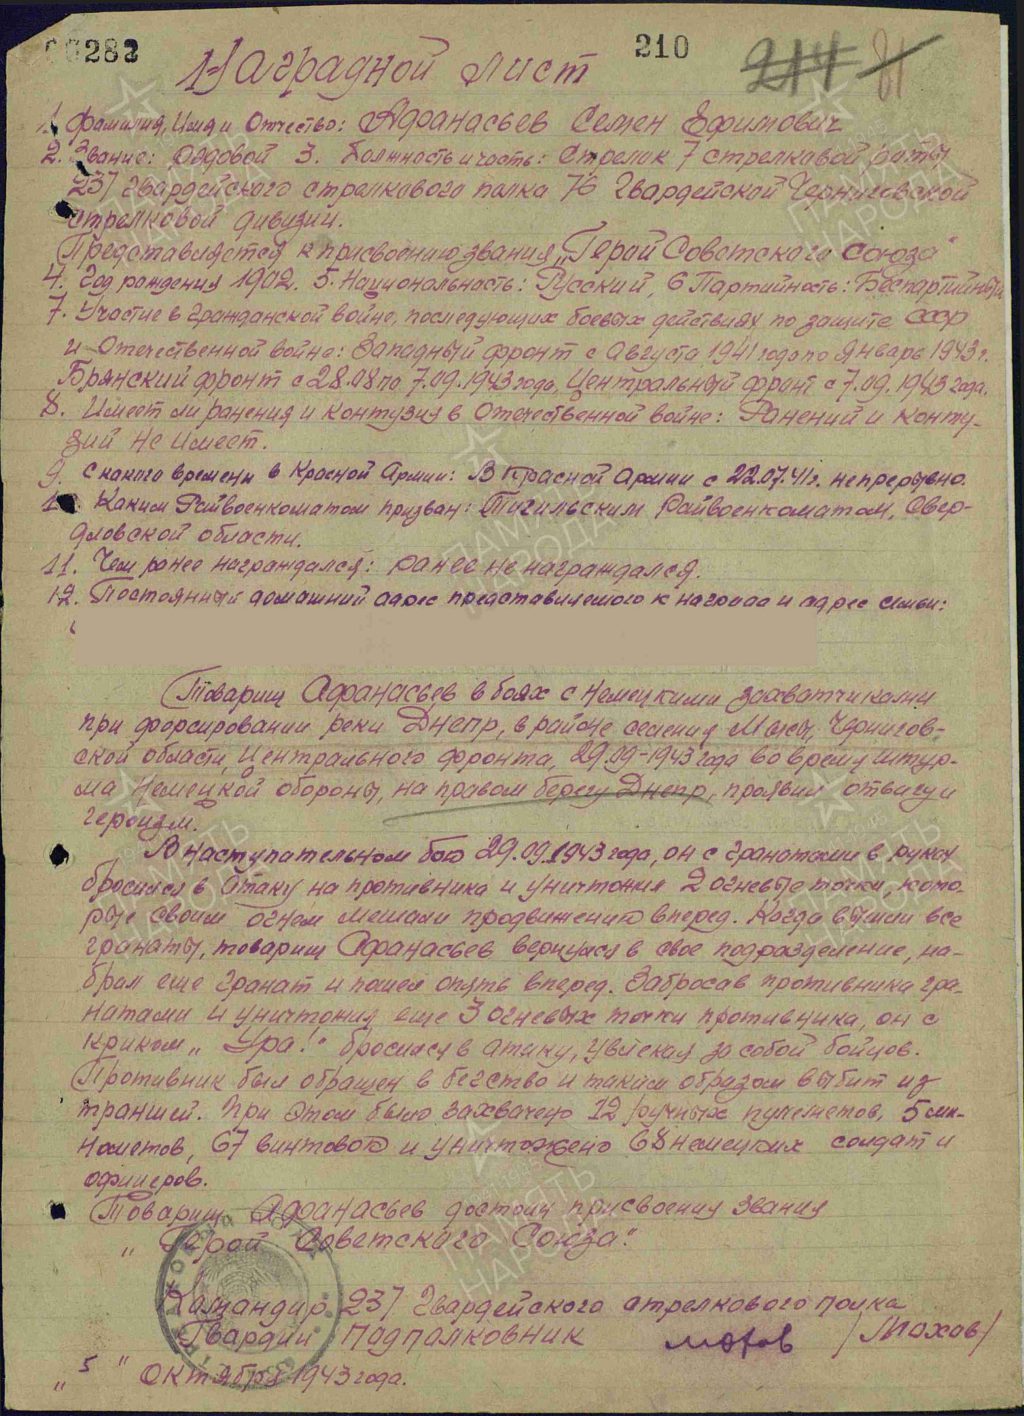 00282
210
214 81
Наградной лист
1. Фамилия, Имя и Отчество: Афанасьев Семен Ефимович
2. Звание: Рядовой 3. Должность и часть: Стрелок 7 стрелковой роты
237 Гвардейского стрелкового полка 76 Гвардейской Черниговской
стрелковой дивизии.
Представляется к присвоению звания „Герой Советского Союза“
4. Год рождения 1902. 5. Национальность: Русский, 6 Партийность: Беспартийный
7. Участие в гражданской войне, последующих боевых действиях по защите СССР
и Отечественной войне: Западный фронт с Августа 1941 года по Январь 1943 г.
Брянский фронт с 28.08 по 7.09.1943 года, Центральный фронт с 7.09.1943 года.
8. Имеет ли ранения и контузия в Отечественной войне: Ранений и конту-
зий не имеет.
9. С какого времени в Красной Армии: В Красной Армии с 22.07.41 г. непрерывно.
10. Каким Райвоенкоматом призван: Тигильским Райвоенкоматом, Свер-
дловской области.
11. Чем ранее награждался: ранее не награждался.
12. Постоянный домашний адрес представляемого к награде и адрес семьи:
Товарищ Афанасьев в боях с немецкими захватчиками
при форсировании реки Днепр, в районе селения Мысы, Чернигов-
ской области, Центрального фронта, 29.09-1943 года во время штур-
ма Немецкой обороны, на правом берегу Днепр, проявил отвагу и
героизм.
В наступательном бою 29.09.1943 года, он с гранатами в руках
бросился в Атаку на противника и уничтожил 2 огневые точки, кото-
рые своим огнем мешали продвижению вперед. Когда вышли все
гранаты, товарищ Афанасьев вернулся в свое подразделение, на-
брал еще гранат и пошел опять вперед. Забросав противника гра-
натами и уничтожил еще 3 огневых точки противника, он с
криком „Ура!“ бросился в атаку, увлекая за собой бойцов.
Противник был обращен в бегство и таким образом выбит из
траншей. При этом было захвачено 12 ручных пулеметов, 5 ми-
нометов, 67 винтовок и уничтожено 68 немецких солдат и
офицеров.
Товарищ Афанасьев достоин присвоения звания
„Герой Советского Союза“.
Командир 237 Гвардейского стрелкового полка
Гвардии Подполковник Мохов /Мохов/
„5“ Октября 1943 года.
ПАМЯТЬ НАРОДА